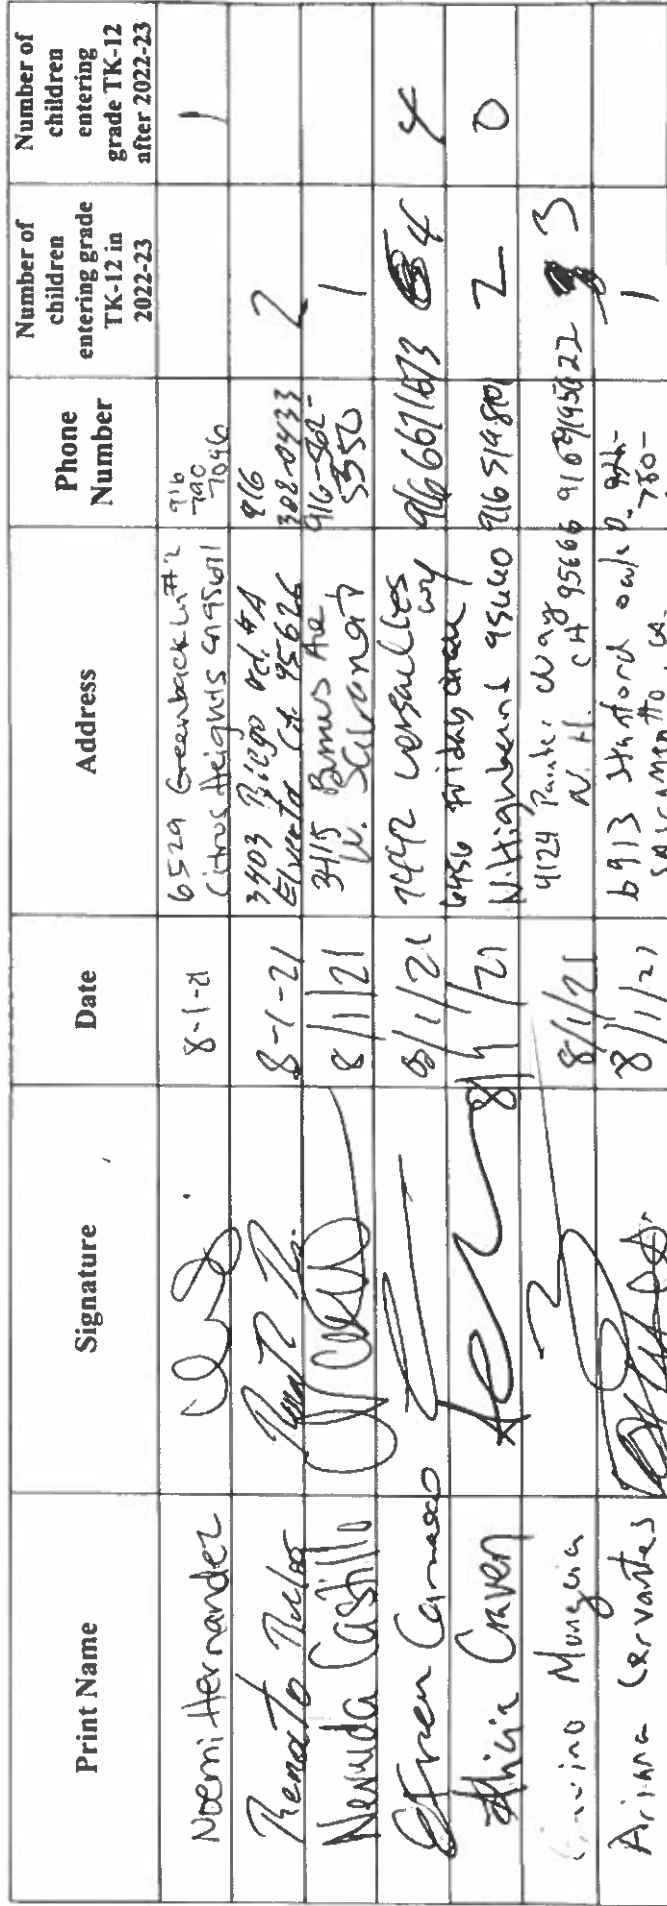 Print Name
Signature
Date
Address
Phone
Number
Number of
children
entering grade
TK-12 in
2022-23
Number of
children
entering
grade TK-12
after 2022-23
Noemi Hernandez
8-1-21
6529 Greenback Ln #2
Citrus Heights CA 95621
916
7046
1
Renato
8-1-21
3403 Rd. #A
Elverta CA. 95626
916
308-0433
2
Neruda Castillo
8/1/21
3415 Ave
916-502-
5550
1
Efren Carrasco
8/1/21
7442 Versailles
wy
9166671673
4
4
Alicia Craven
8/1/21
6456 Friday Circle
N. Highland 95660
916 519
2
0
Munguia
8/1/21
4124 Way
N. H. CA 95660
3
Ariana Cervantes
8/1/21
6913 Stanford oak D.
Sacramento, ca.
780-
1